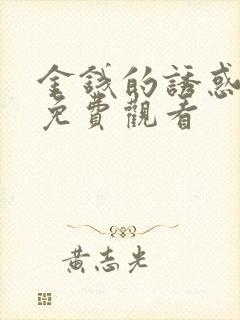 金錢的誘惑
免費觀看
黃志光